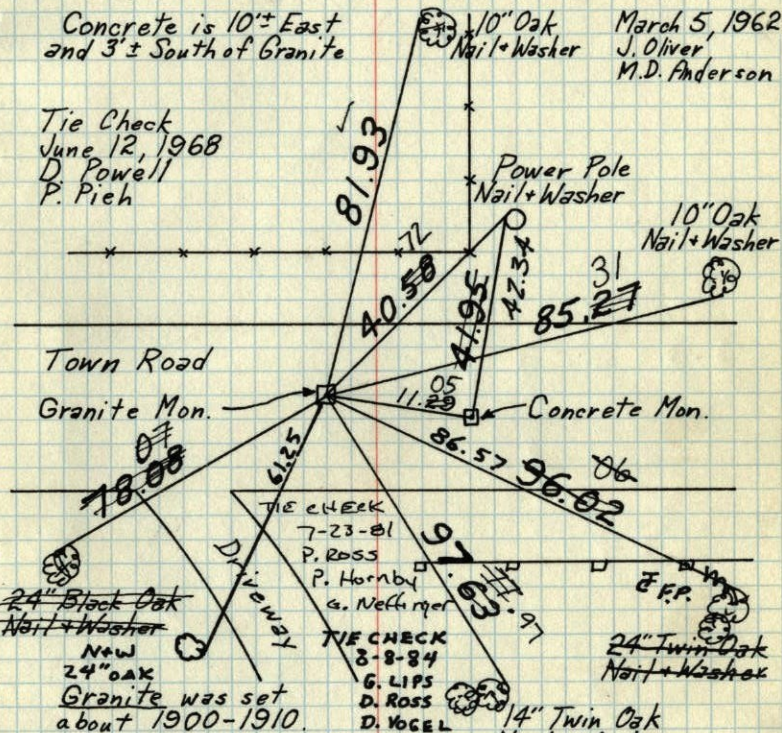 Concrete is 10'± East
and 3'± South of Granite
10" Oak
Nail + Washer
March 5, 1962
J. Oliver
M.D. Anderson
Tie Check
June 12, 1968
D. Powell
P. Pieh
81.93
Power Pole
Nail + Washer
10" Oak
Nail + Washer
72
40.58
41.95
42.34
31
85.27
Town Road
Granite Mon.
05
11.29
Concrete Mon.
07
78.08
61.25
86.57
96.02
06
TIE CHECK
7-23-81
P. ROSS
P. Hornby
Driveway
97.63
.97
F.P.
24" Black Oak
Nail + Washer
N+W
24" OAK
24" Twin Oak
Nail + Washer
TIE CHECK
8-8-84
G. LIPS
D. ROSS
D. VOGEL
Granite was set
about 1900-1910.
14" Twin Oak